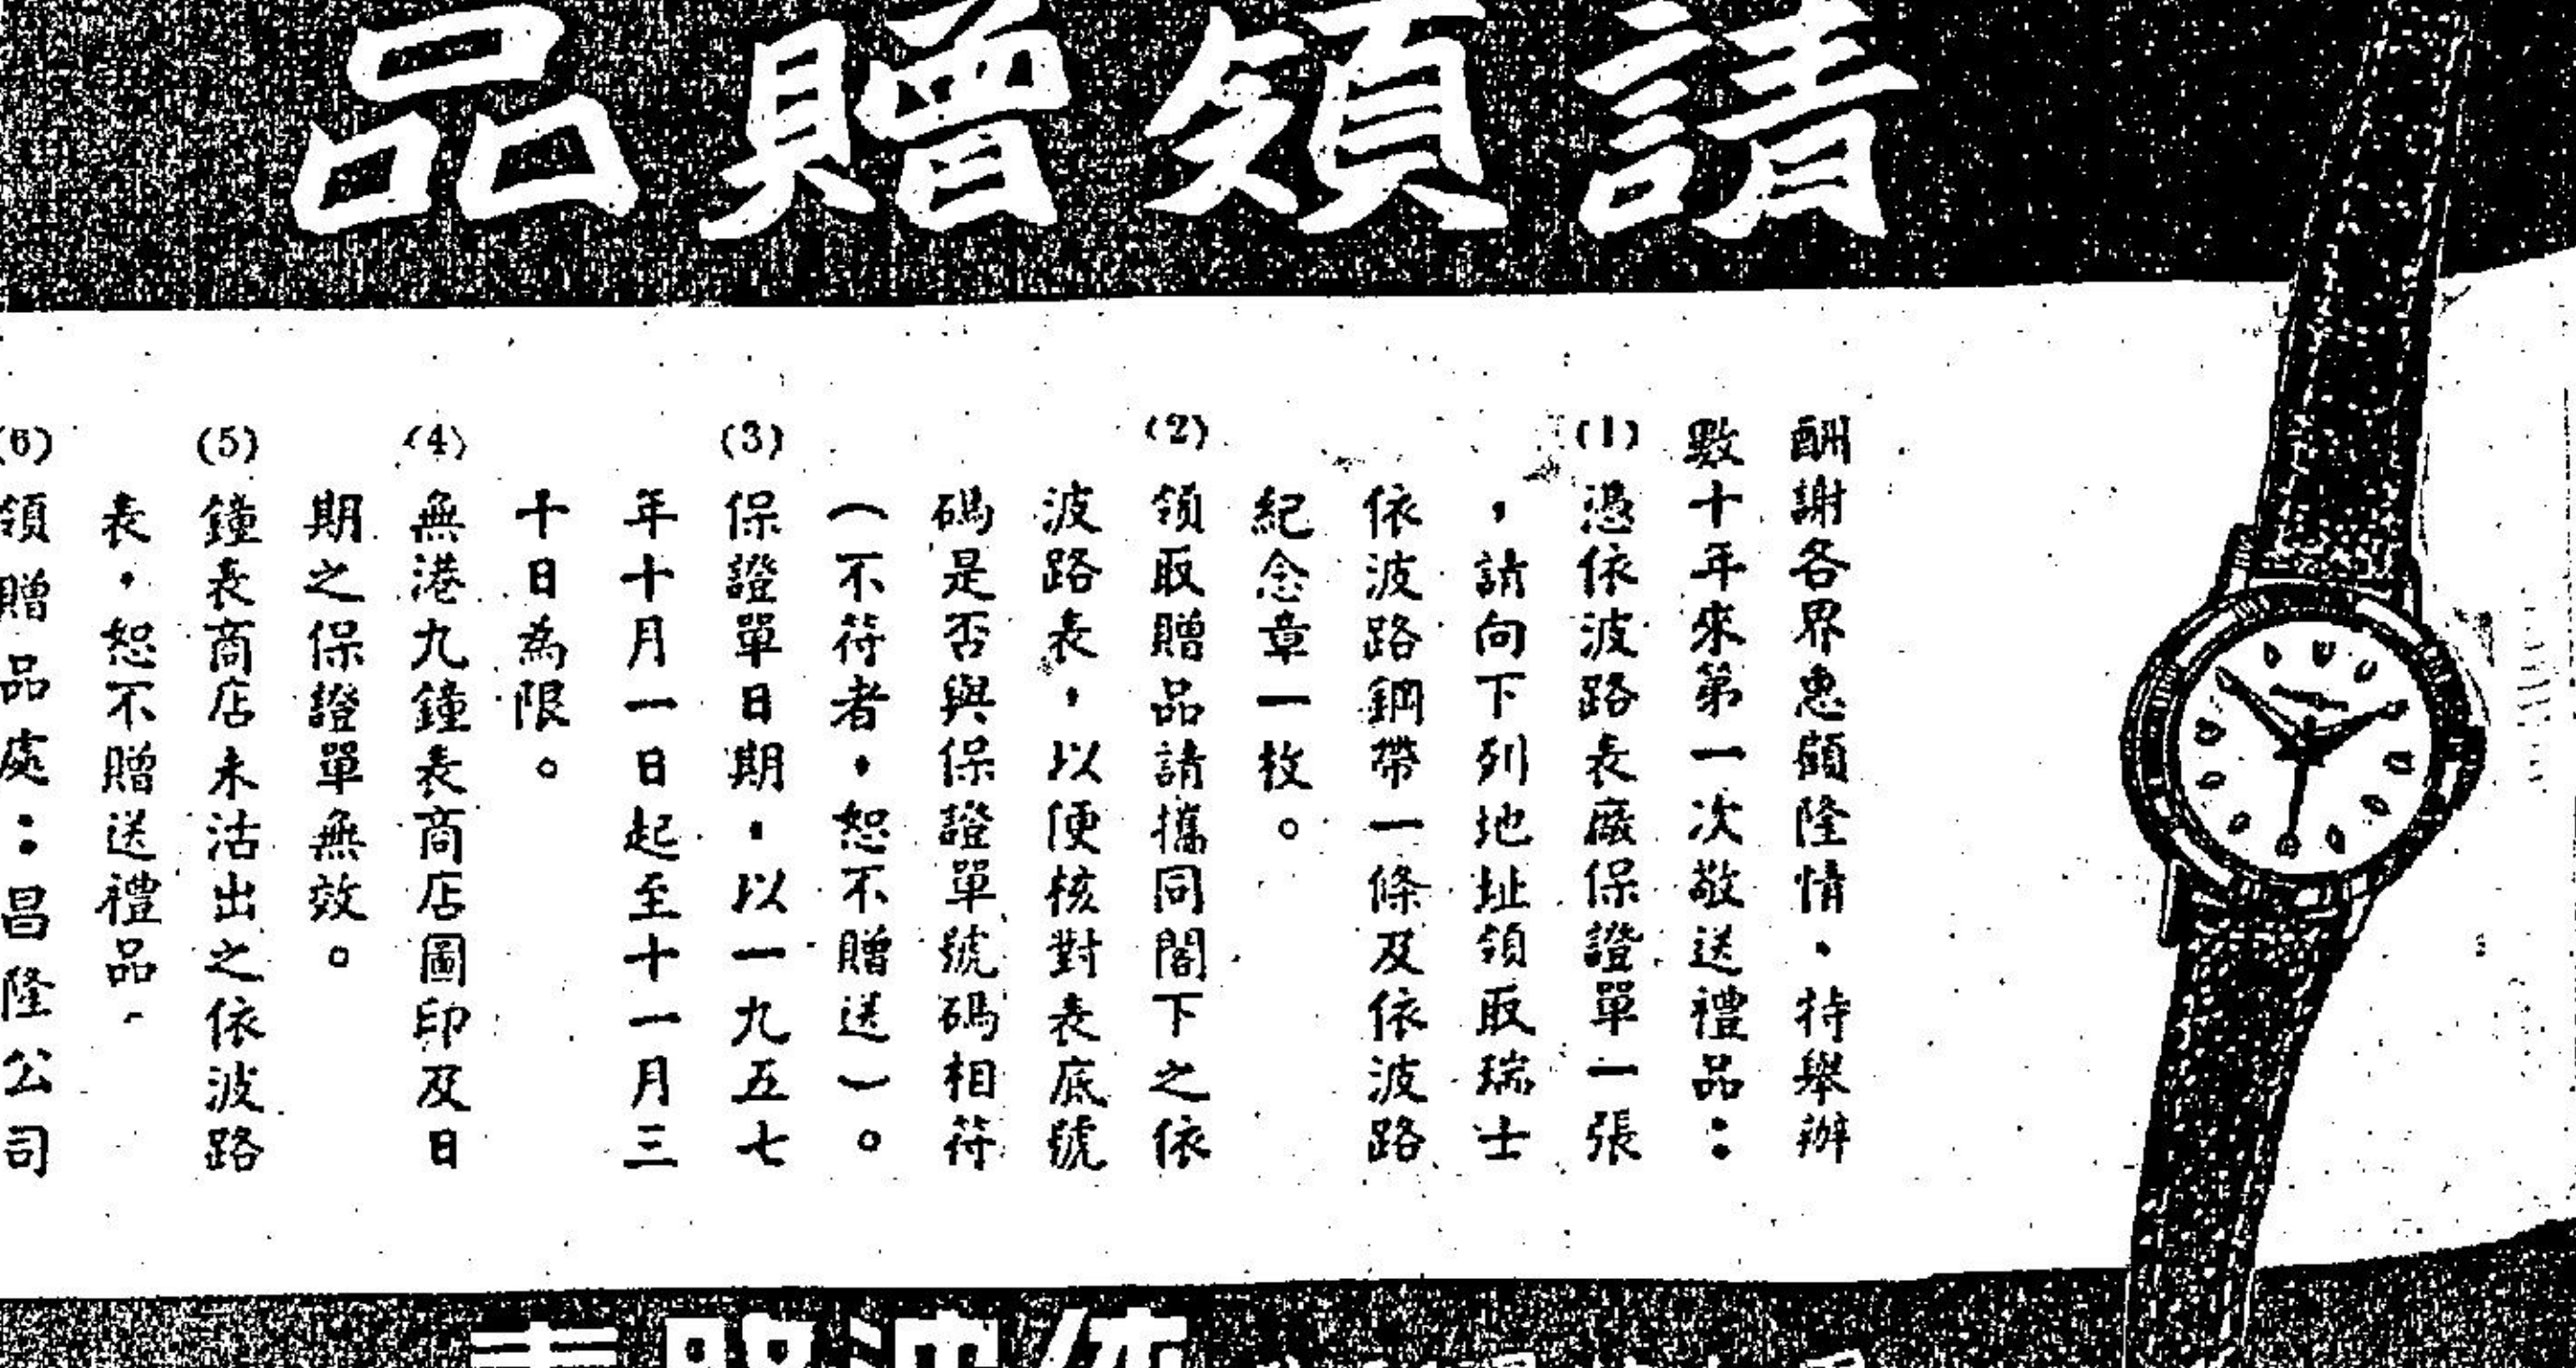 請領贈品
酬謝各界惠顧隆情，特舉辦
數十年來第一次敬送禮品：
(1)憑依波路表廠保證單一張
，請向下列地址領取瑞士
依波路鋼帶一條及依波路
紀念章一枚。
(2)領取贈品請攜同閣下之依
波路表，以便核對表底號
碼是否與保證單號碼相符
（不符者，恕不贈送）。
(3)保證單日期，以一九五七
年十月一日起至十一月三
十日為限。
(4)無港九鐘表商店圖印及日
期之保證單無效。
(5)鐘表商店未沽出之依波路
表，恕不贈送禮品。
(6)領贈品處：昌隆公司
依波路表